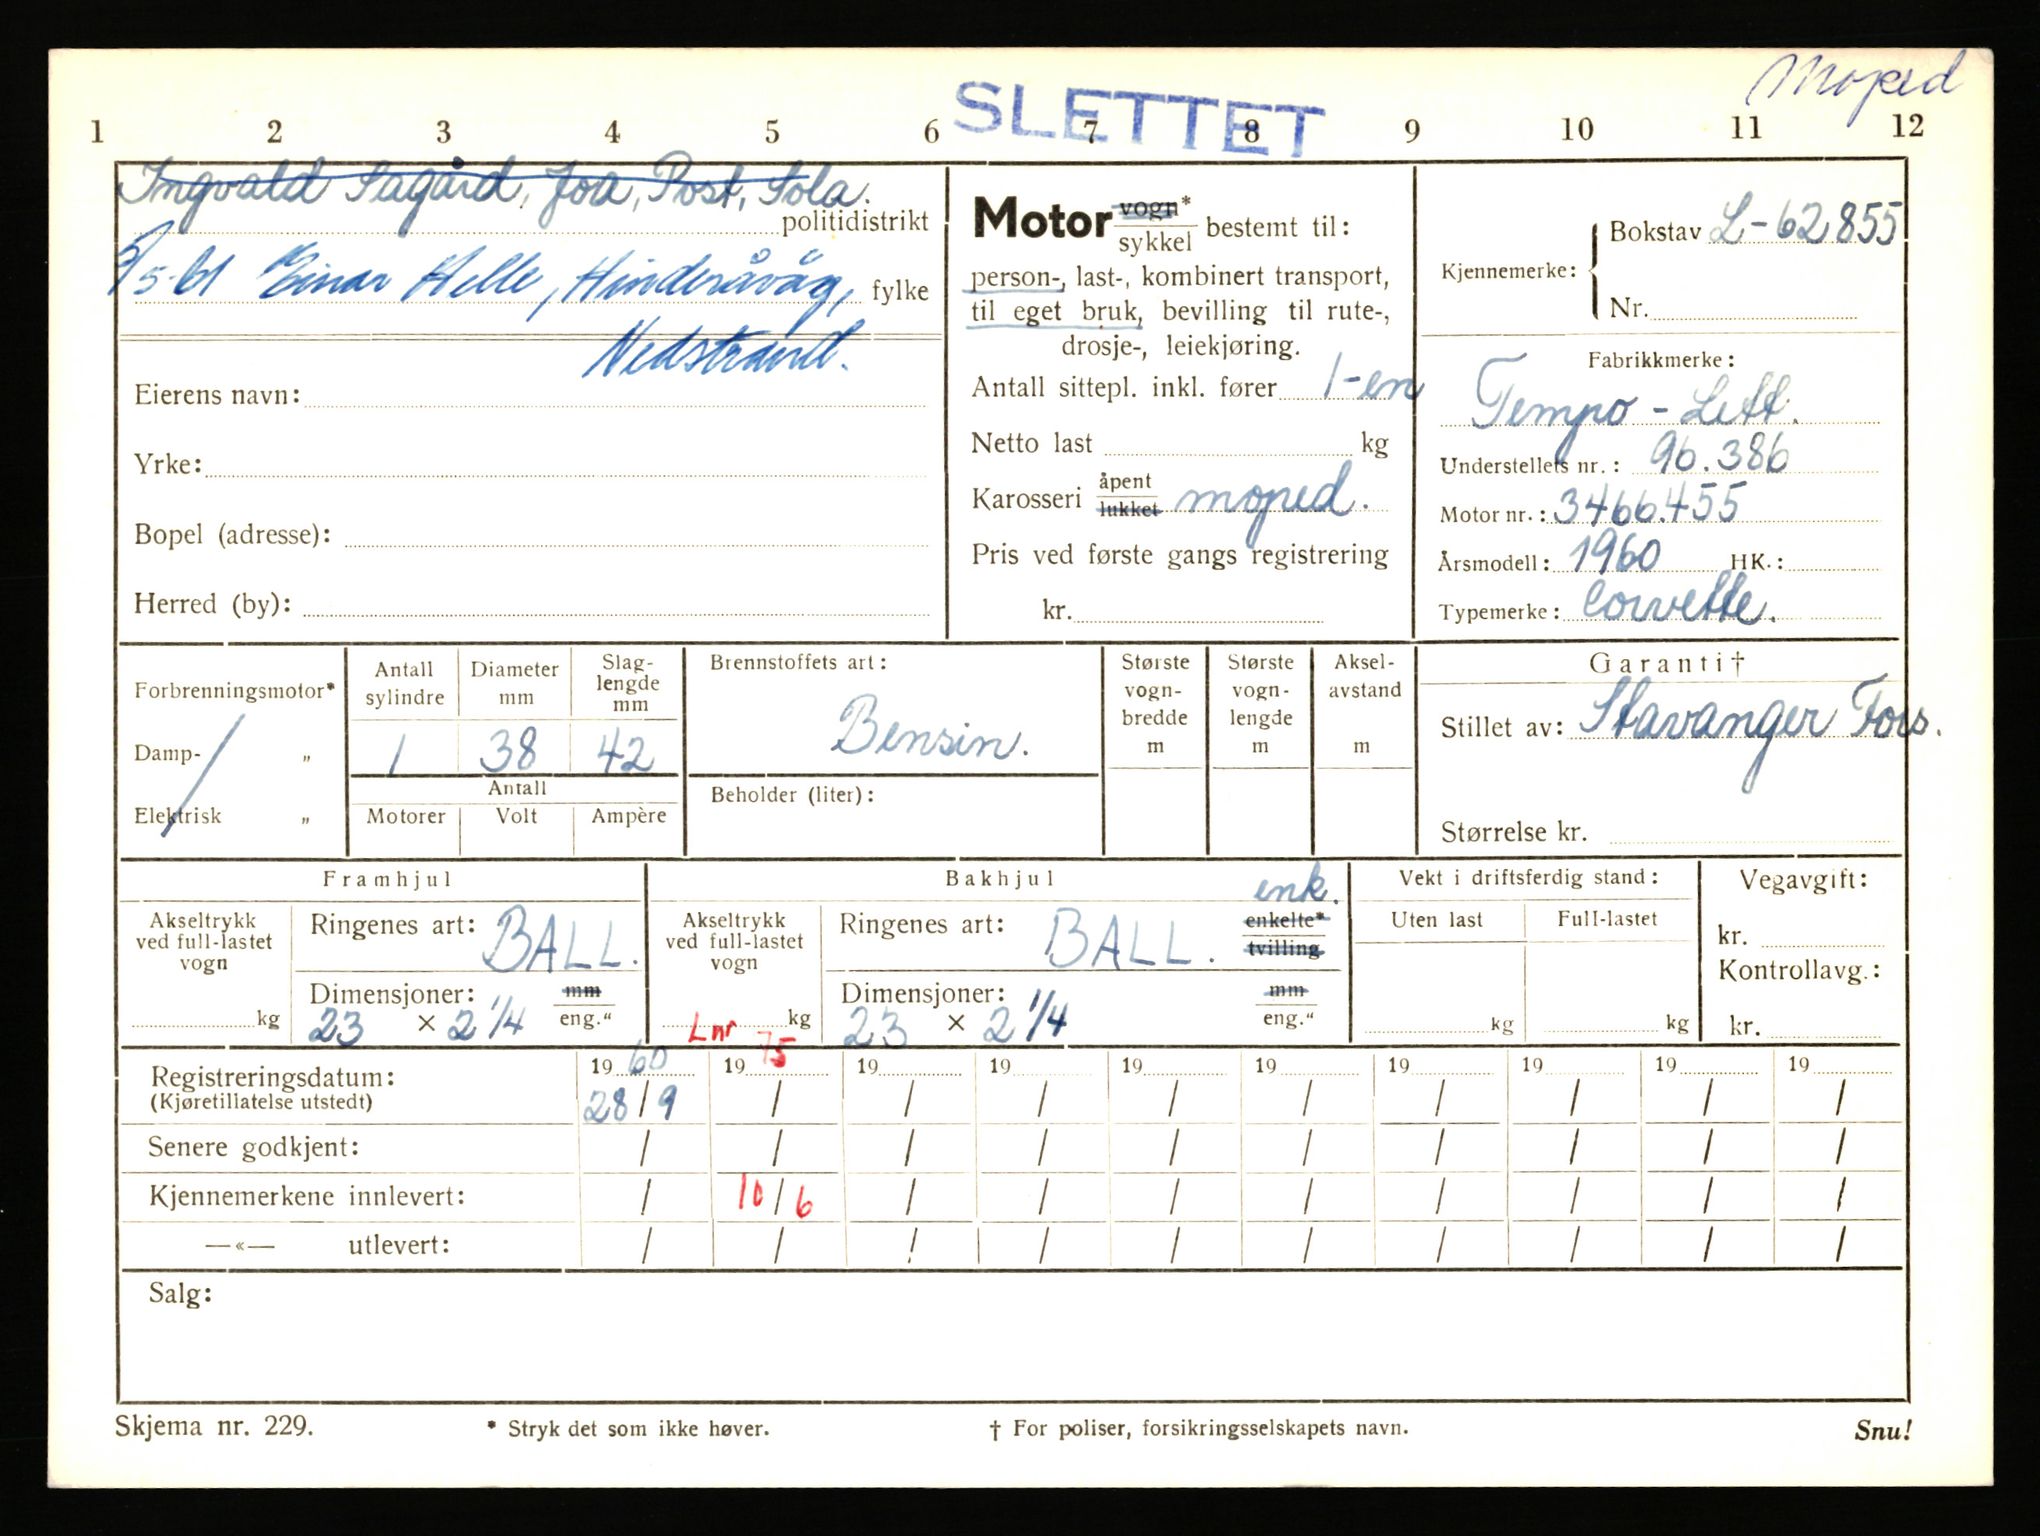 Moped
SLETTET
1 2 3 4 5 6 7 8 9 10 11 12
Ingvald Sagård, Joa, Post, Sola.
politidistrikt
5/5-61 Einar Helle, Hinderåvåg,
fylke
Nedstrand.
Eierens navn:
Yrke:
Bopel (adresse):
Herred (by):
Motor vogn* sykkel bestemt til:
person-, last-, kombinert transport,
til eget bruk, bevilling til rute-,
drosje-, leiekjøring.
Antall sittepl. inkl. fører 1-en
Netto last kg
Karosseri åpent lukket moped.
Pris ved første gangs registrering
kr.
Kjennemerke: Bokstav L-62855
Nr.
Fabrikkmerke:
Tempo - Lett.
Understellets nr.: 96.386
Motor nr.: 3466.455
Årsmodell: 1960 HK.:
Typemerke: Corvette.
Forbrenningsmotor*
Damp- „
Elektrisk „
Antall sylindre
Diameter mm
Slag-lengde mm
1 38 42
Antall
Motorer Volt Ampère
Brennstoffets art:
Bensin.
Beholder (liter):
Største vogn-bredde m
Største vogn-lengde m
Aksel-avstand m
Garanti†
Stillet av: Stavanger Fors.
Størrelse kr.
Framhjul
Akseltrykk ved full-lastet vogn
kg
Ringenes art: BALL.
Dimensjoner: mm
23 × 2 1/4 eng."
Bakhjul
Akseltrykk ved full-lastet vogn
kg
Ringenes art: BALL.
enk.
enkelte*
tvilling
Dimensjoner: mm
23 × 2 1/4 eng."
Vekt i driftsferdig stand:
Uten last Full-lastet
kg kg
Vegavgift:
kr.
Kontrollavg.:
kr.
Lnr
Registreringsdatum: 19 60 19 75 19 19 19 19 19 19 19 19
(Kjøretillatelse utstedt) 28/9 / / / / / / / / /
Senere godkjent: / / / / / / / / / /
Kjennemerkene innlevert: / 10/6 / / / / / / / /
—«— utlevert: / / / / / / / / / /
Salg:
Skjema nr. 229. * Stryk det som ikke høver. † For poliser, forsikringsselskapets navn. Snu!